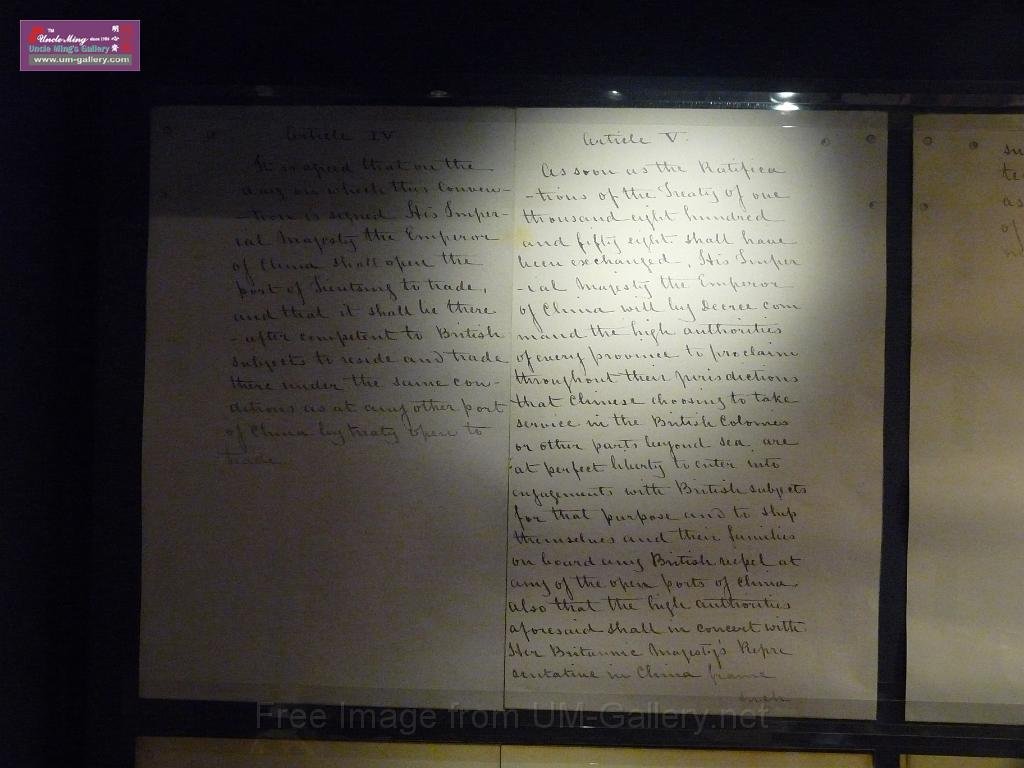 TM
Uncle Ming since 1986
Uncle Ming's Gallery
www.um-gallery.com
Article IV
It is agreed that on the
day on which this Conven-
-tion is signed His Imper-
ial Majesty the Emperor
of China shall open the
port of Tientsing to trade,
and that it shall be there
-after competent to British
subjects to reside and trade
there under the same con-
ditions as at any other port
of China by treaty open to
trade
Article V.
As soon as the Ratifica
-tions of the Treaty of one
thousand eight hundred
and fifty eight shall have
been exchanged, His Imper
-ial Majesty the Emperor
of China will by Decree com
mand the high authorities
of every province to proclaim
throughout their jurisdictions
that Chinese choosing to take
service in the British Colonies
or other parts beyond sea are
at perfect liberty to enter into
engagements with British subjects
for that purpose and to ship
themselves and their families
on board any British vessel at
any of the open ports of China
also that the high authorities
aforesaid shall in concert with
Her Britannic Majesty's Repre
sentative in China frame
such
su
te
as
of
Free Image from UM-Gallery.net